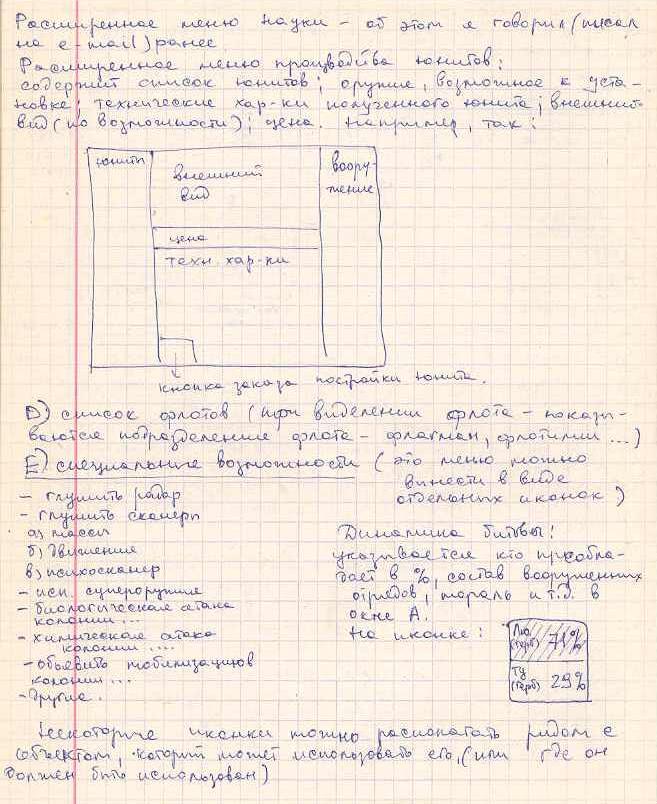 Расширенное меню науки – об этом я говорил (писал
на e-mail) ранее.
Расширенное меню производства юнитов:
содержит список юнитов; оружие, возможное к уста-
новке; технические хар-ки полученного юнита; внешний
вид (по возможности); цена. Например, так:
юниты
внешний
вид
воору-
жение
цена
техн. хар-ки
кнопка заказа постройки юнита.
D) список флотов (при выделении флота – показы-
ваются подразделения флота – флагман, флотилии ...)
E) специальные возможности (это меню можно
вынести в виде
отдельных иконок)
– глушить радар
– глушить сканеры
а) массы
б) движения
в) психосканер
– исп. супероружия
– биологическая атака
колонии ...
– химическая атака
колонии ....
– объявить мобилизацию
колонии ...
– другие.
Динамика битвы:
указывается кто преобла-
дает в %, состав вооруженных
отрядов, мораль и т.д. в
окне А.
На иконке:
(герб) 71%
(герб) 29%
Некоторые иконки можно располагать рядом с
объектом, который может использовать его, (или где он
должен быть использован)